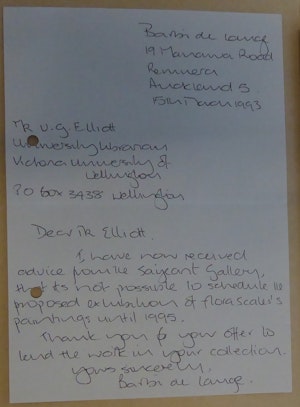 Barbi de Lange
19 Manawa Road
Remuera
Auckland 5
15th March 1993
Mr V.G. Elliott
University Librarian
Victoria University of
Wellington
PO Box 3438 Wellington
Dear Mr Elliott.
I have now received
advice from the Sarjeant Gallery,
that its not possible to schedule the
proposed exhibition of Flora Scales's
paintings until 1995.
Thank you for your offer to
lend the work in your collection.
Yours sincerely,
Barbi de Lange.